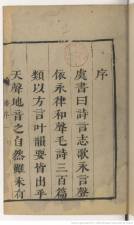 序
虞書曰詩言志歌永言聲
依永律和聲毛詩三百篇
類以方言叶韻要皆出乎
天聲地音之自然雖未有